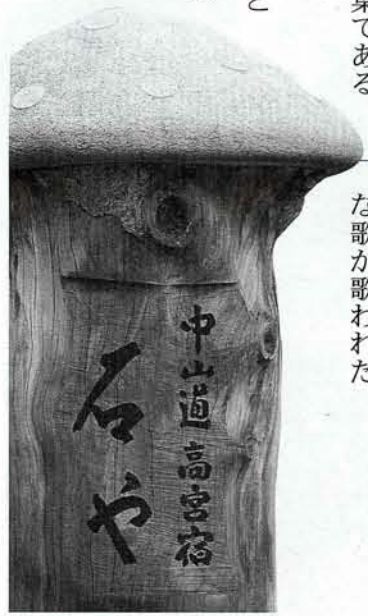 と
葉である
な歌が歌われた
中山道 高宮宿
石や